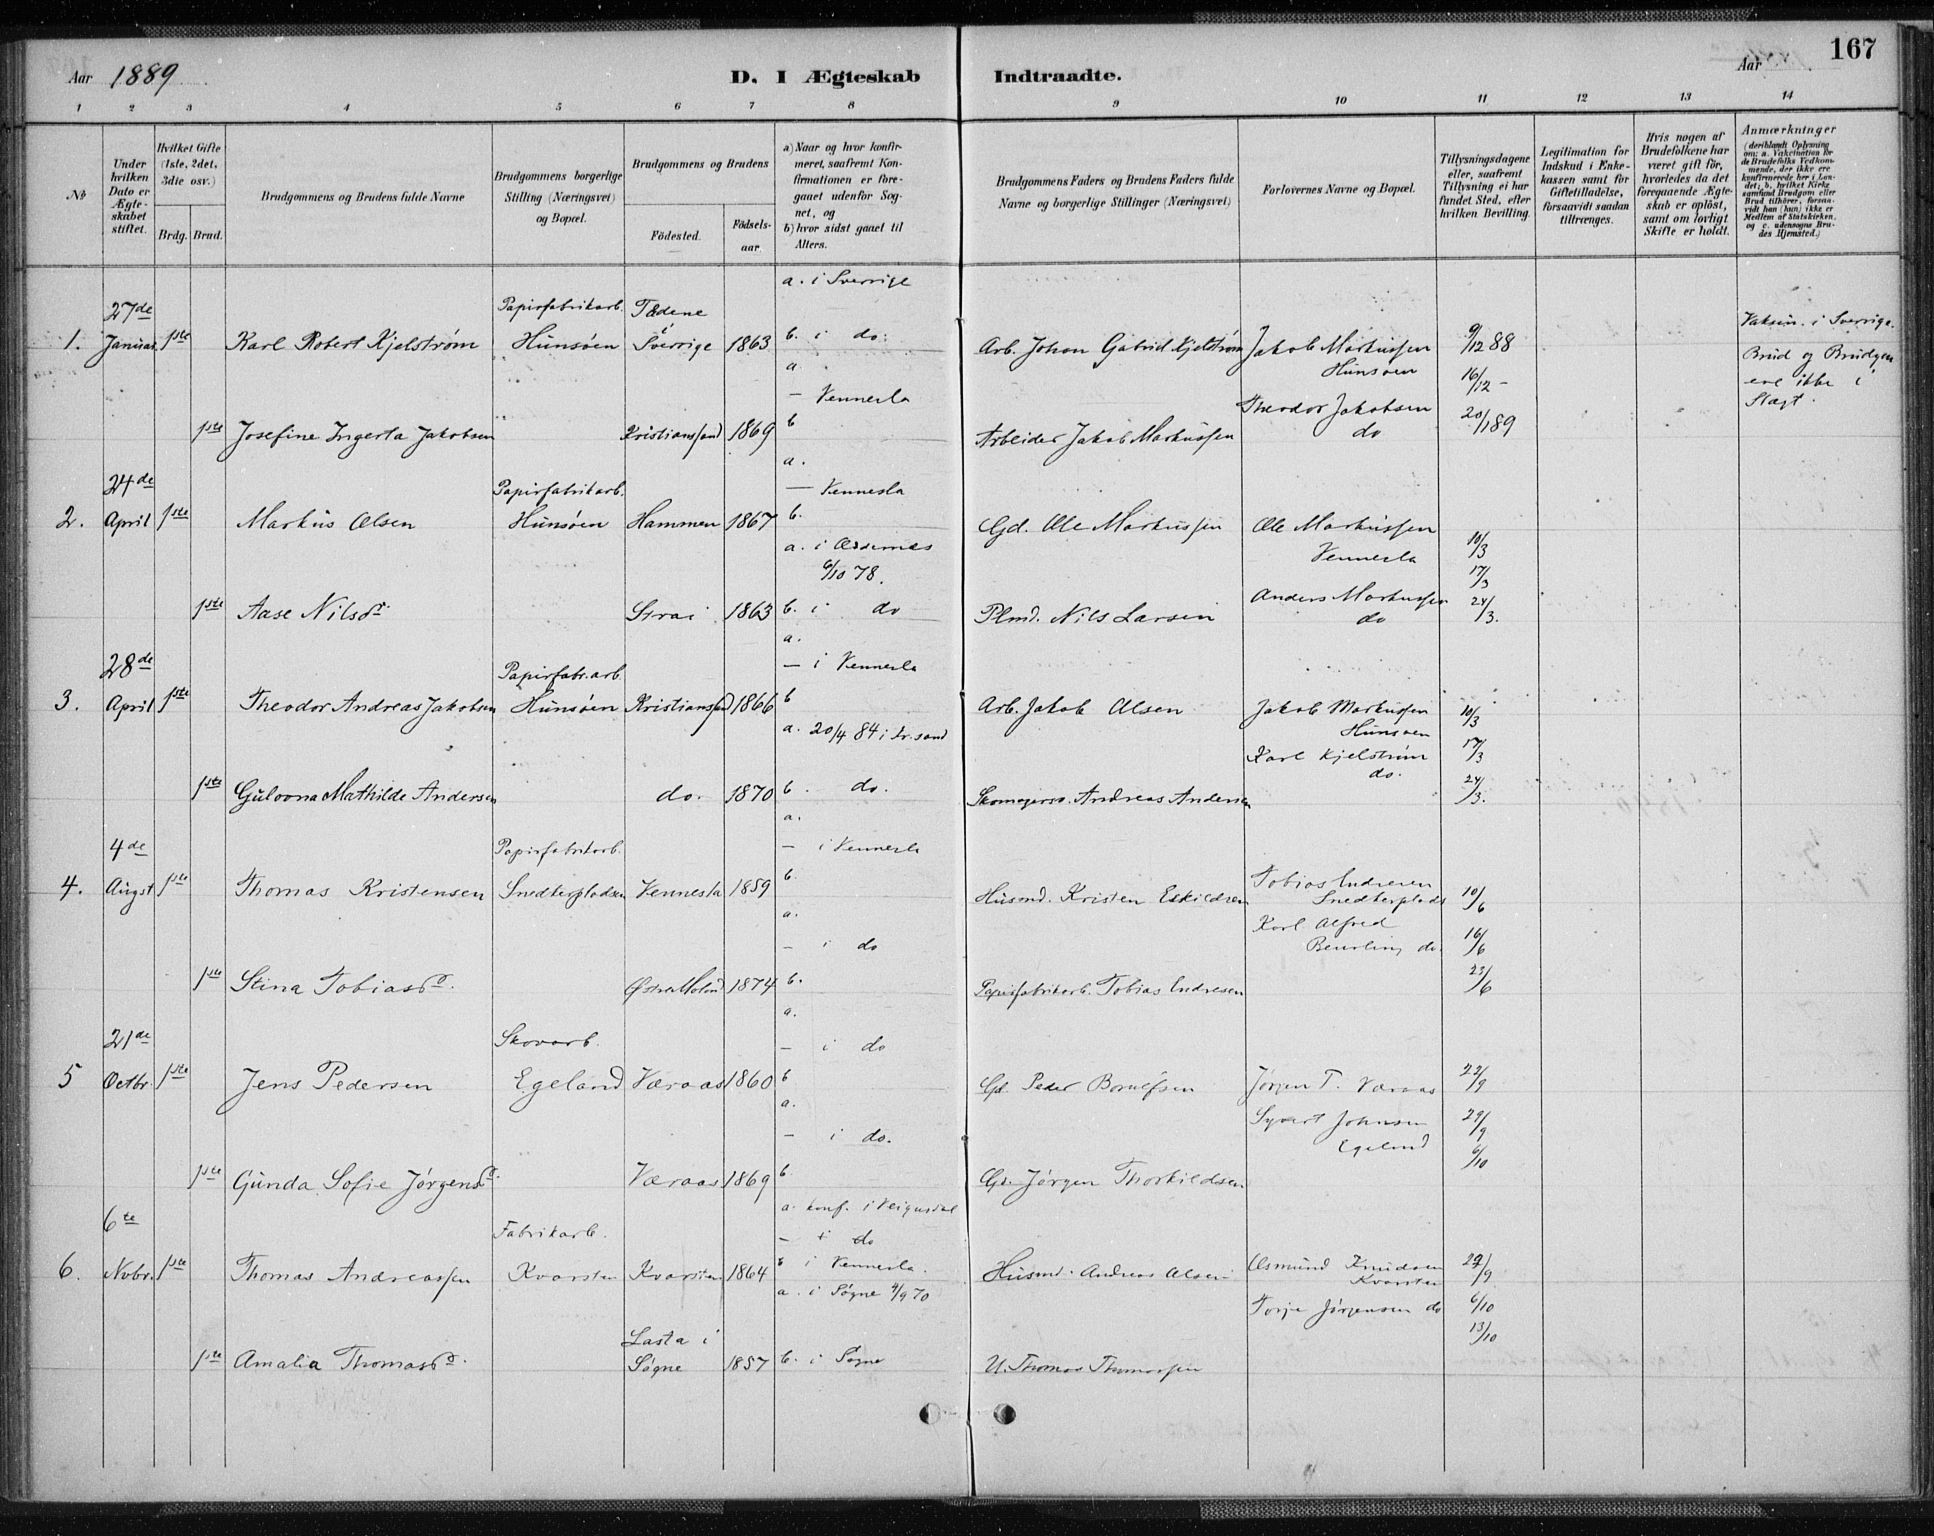 167
Aar 1889
D. I Ægteskab Indtraadte.
Aar
1 2 3 4 5 6 7 8 9 10 11 12 13 14
No
Under hvilken Dato er Ægteskabet stiftet.
Hvilket Gifte (1ste, 2det, 3die osv.)
Brdg. Brud.
Brudgommens og Brudens fulde Navne
Brudgommens borgerlige Stilling (Næringsvei) og Bopæl.
Brudgommens og Brudens
Fødested.
Fødselsaar.
a) Naar og hvor konfirmeret, saafremt Konfirmationen er foregaaet udenfor Sognet, og
b) hvor sidst gaaet til Alters.
Brudgommens Faders og Brudens Faders fulde Navne og borgerlige Stillinger (Næringsvei)
Forlovernes Navne og Bopæl.
Tillysningsdagene eller, saafremt Tillysning ei har fundet Sted, efter hvilken Bevilling.
Legitimation for Indskud i Enkekassen samt for Giftetilladelse, forsaavidt saadan tiltrænges.
Hvis nogen af Brudefolkene har været gift før, hvorledes da det foregaaende Ægteskab er opløst, samt om lovligt Skifte er holdt.
Anmærkninger (deriblandt Oplysning om: a. Vakcination for de Brudefolks Vedkommende, der ikke ere konfirmerede her i Landet; b. hvilket Kirkesamfund Brudgom eller Brud tilhører, forsaavidt han (hun) ikke er Medlem af Statskirken, og c. udensogns Brudes Hjemsted.)
a. i Sverrige
27de Papirfabrikarb. Tødene
1. Januar 1ste Karl Robert Kjelstrøm Hunsøen i Sverrige 1863 b. i do. Arb. Johan Gabriel Kjelstrøm Jakob Markussen Hunsøen 9/12 88
Vaksin. i Sverrige. Brud og Brudgom ere ikke i Slægt.
a. 16/12 –
– Vennesla Theodor Jakobsen do 20/1 89
1ste Josefine Ingerta Jakobsen Kristianssand 1869 b Arbeider Jakob Markussen
a.
24de Papirfabrikarb. – Vennesla
2. April 1ste Markus Olsen Hunsøen Hammen 1867 b. Gd. Ole Markussen Ole Markussen Vennesla 10/3
a. i Oddernes 6/10 78. 17/3
1ste Aase Nilsd. Strai 1863 b. i do Plmd. Nils Larsen Anders Markussen do 24/3.
a.
28de Papirfabr.arb. – i Vennesla
3. April 1ste Theodor Andreas Jakobsen Hunsøen Kristianssd 1866 b Arb. Jakob Olsen Jakob Markussen Hunsøen 10/3
a. 20/4 84 i Kr.sand Karl Kjelstrøm do. 17/3
1ste Gulovna Mathilde Andersen do. 1870 b. do. Skomagersv. Andreas Andersen 24/3.
a.
4de Papirfabrikarb. – i Vennesla
4. Augst 1ste Thomas Kristensen Snedkerpladsen Vennesla 1859 b. Husmd. Kristen Eskildsen Tobias Endresen Snedkerplads 10/6
a.
– i do Karl Alfred Beurling do. 16/6
1ste Stina Tobiasd. Østre Moland 1874 b. Papirfabrikarb. Tobias Endresen 23/6
a.
21de Skovarb. – i do
5 Octbr. 1ste Jens Pedersen Egeland Væraas 1860 b Gd. Peder Jørgen T. Væraas 22/9
a.
– i do. Syvert Johnsen Egeland 29/9
1ste Gunda Sofie Jørgensd. Væraas 1869 b Gd. Jørgen Thorkildsen 6/10
a. konf. i Veigusdal
6te Fabrikarb. – i do
6. Nvbr. 1ste Thomas Andreassen Kvarsten Kvarsten 1864 b i Vennesla. Husmd. Andreas Olsen Osmund Knudsen Kvarsten 29/9
a. i Søgne 4/9 70 Torje Jørgensen do 6/10
Lasta i 13/10
1ste Amalia Thomasd. Søgne 1857 b. i Søgne U. Thomas Thomassen